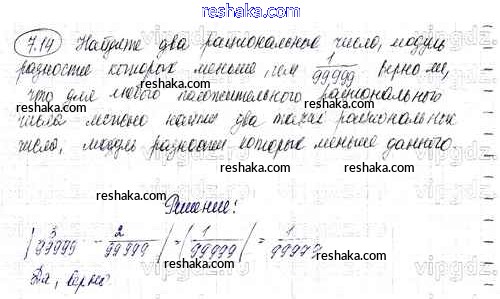 reshaka.com
7.14 Найдите два рациональные числа, модуль
разности которых меньше, чем 1/99999 Верно ли,
что для любого положительного рационального
числа можно найти два таких рациональные
числа, модуль разности которых меньше данного.
reshaka.com
reshaka.com
reshaka.com
reshaka.com
Решение:
reshaka.com
| 3/99999 - 2/99999 | = | 1/99999 | = 1/99999
Да, верно
reshaka.com
reshaka.com